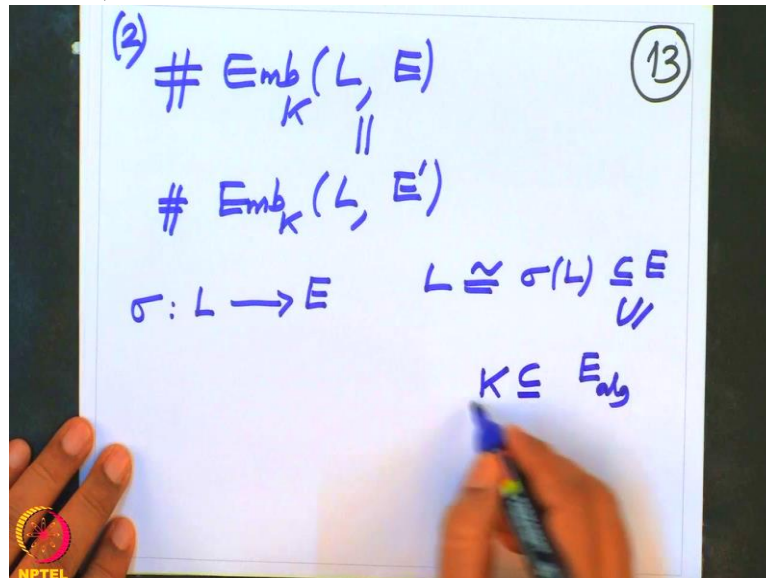 (2) # Emb_K (L, E)
13
||
# Emb_K (L, E')
σ : L ⟶ E L ≅ σ(L) ⊆ E
∪|
K ⊆ E_alg
NPTEL